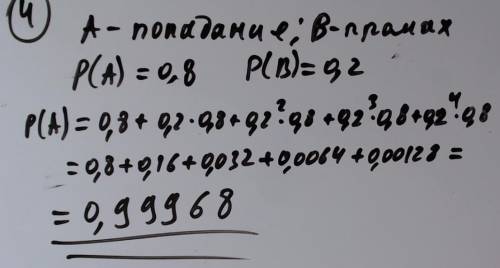 4
A - попадание; B - промах
P(A) = 0,8 P(B) = 0,2
P(A) = 0,8 + 0,2·0,8 + 0,2²·0,8 + 0,2³·0,8 + 0,2⁴·0,8
= 0,8 + 0,16 + 0,032 + 0,0064 + 0,00128 =
= 0,99968